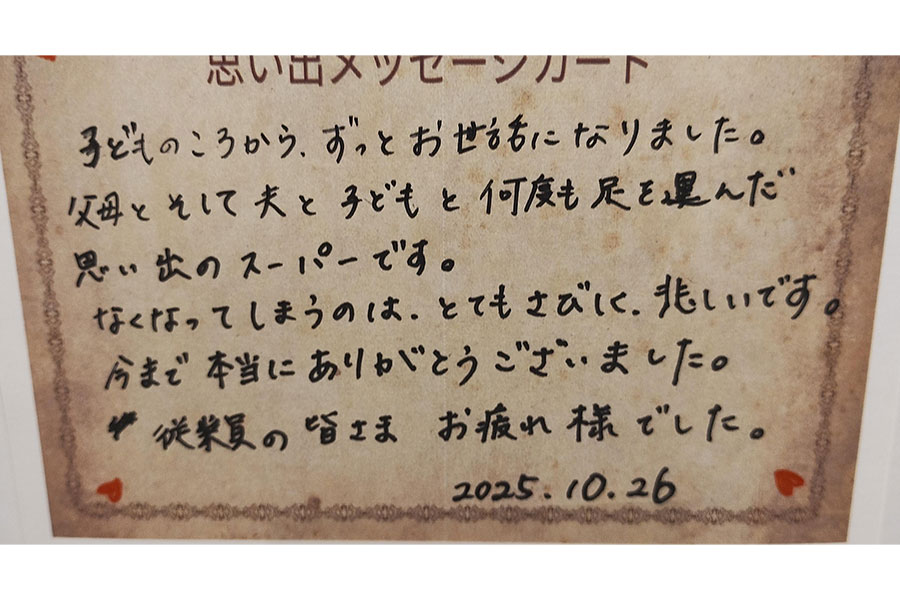 思い出メッセージカード
子どものころから、ずっとお世話になりました。
父母とそして夫と子どもと何度も足を運んだ
思い出のスーパーです。
なくなってしまうのは、とてもさびしく、悲しいです。
今まで本当にありがとうございました。
従業員の皆さま お疲れ様でした。
2025.10.26